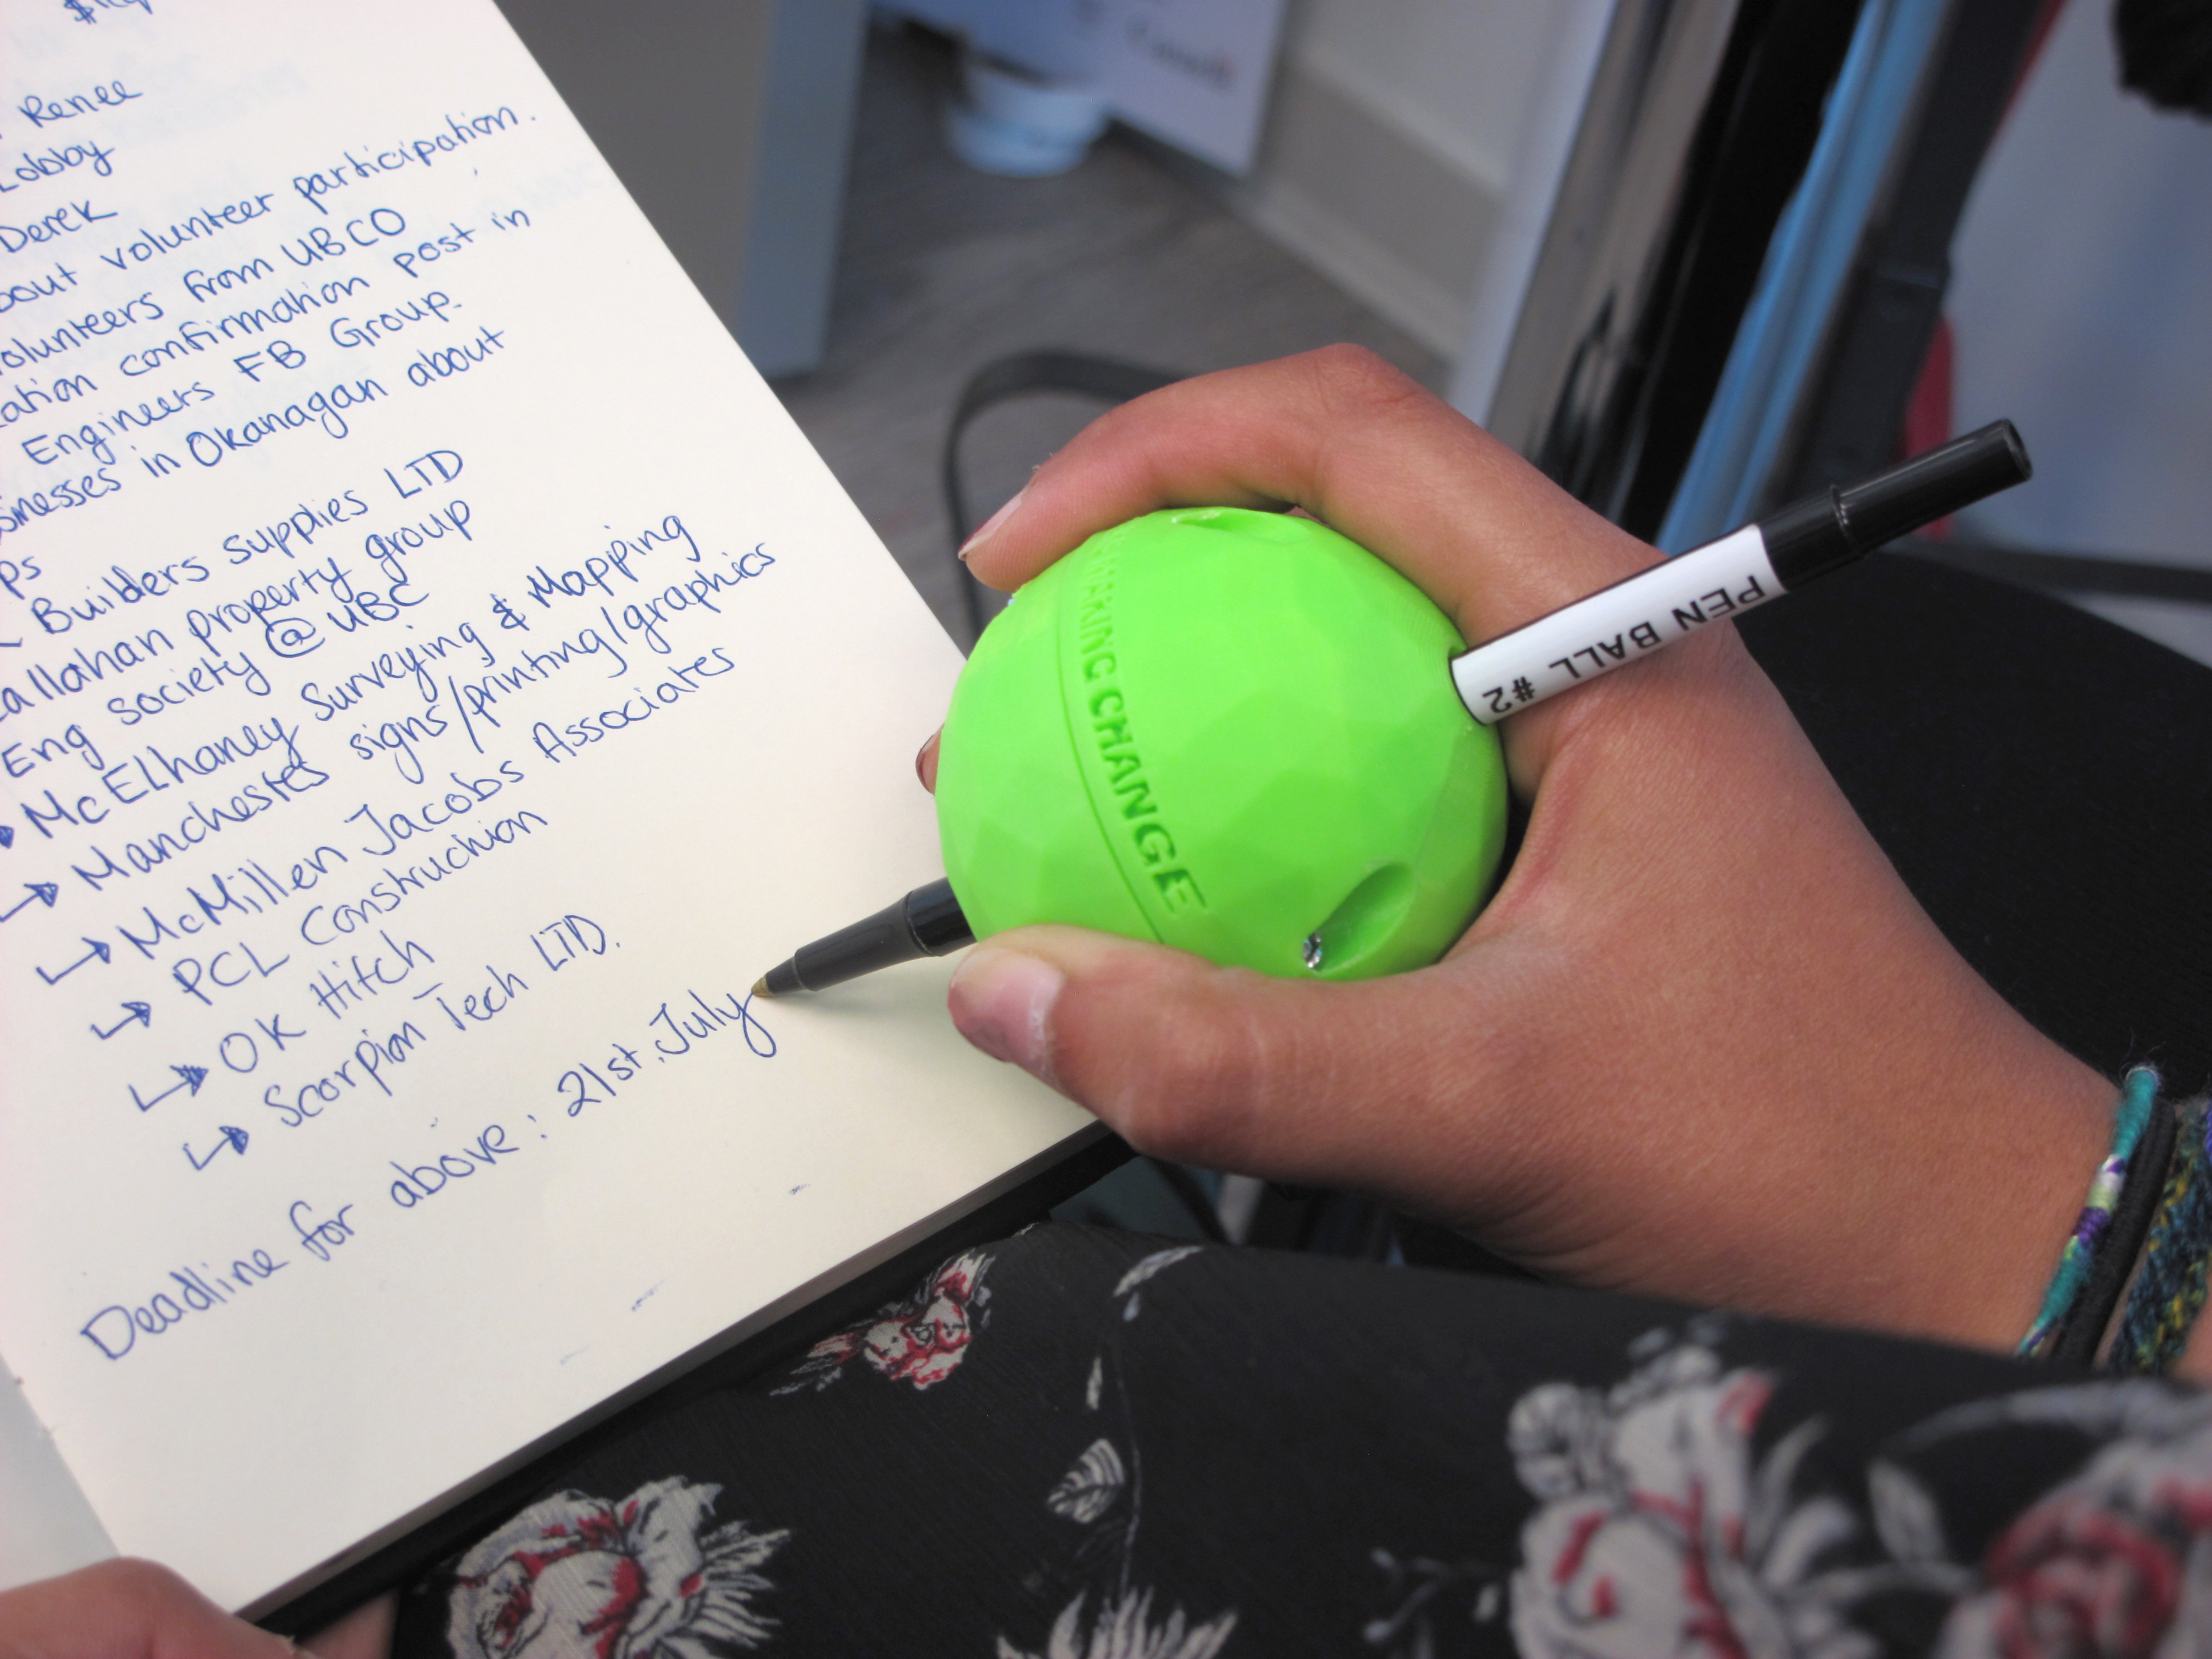 Renee
Lobby
Derek
about volunteer participation.
volunteers from UBCO
confirmation post in
Engineers FB Group.
businesses in Okanagan about
Builders Supplies LTD
Callahan property group
Eng Society @ UBC
McElhaney Surveying & Mapping
Manchestes signs/printing/graphics
McMillen Jacobs Associates
PCL Construction
OK Hitch
Scorpion Tech LTD.
Deadline for above : 21st July
MAKING CHANGE
PEN BALL #2
Canada